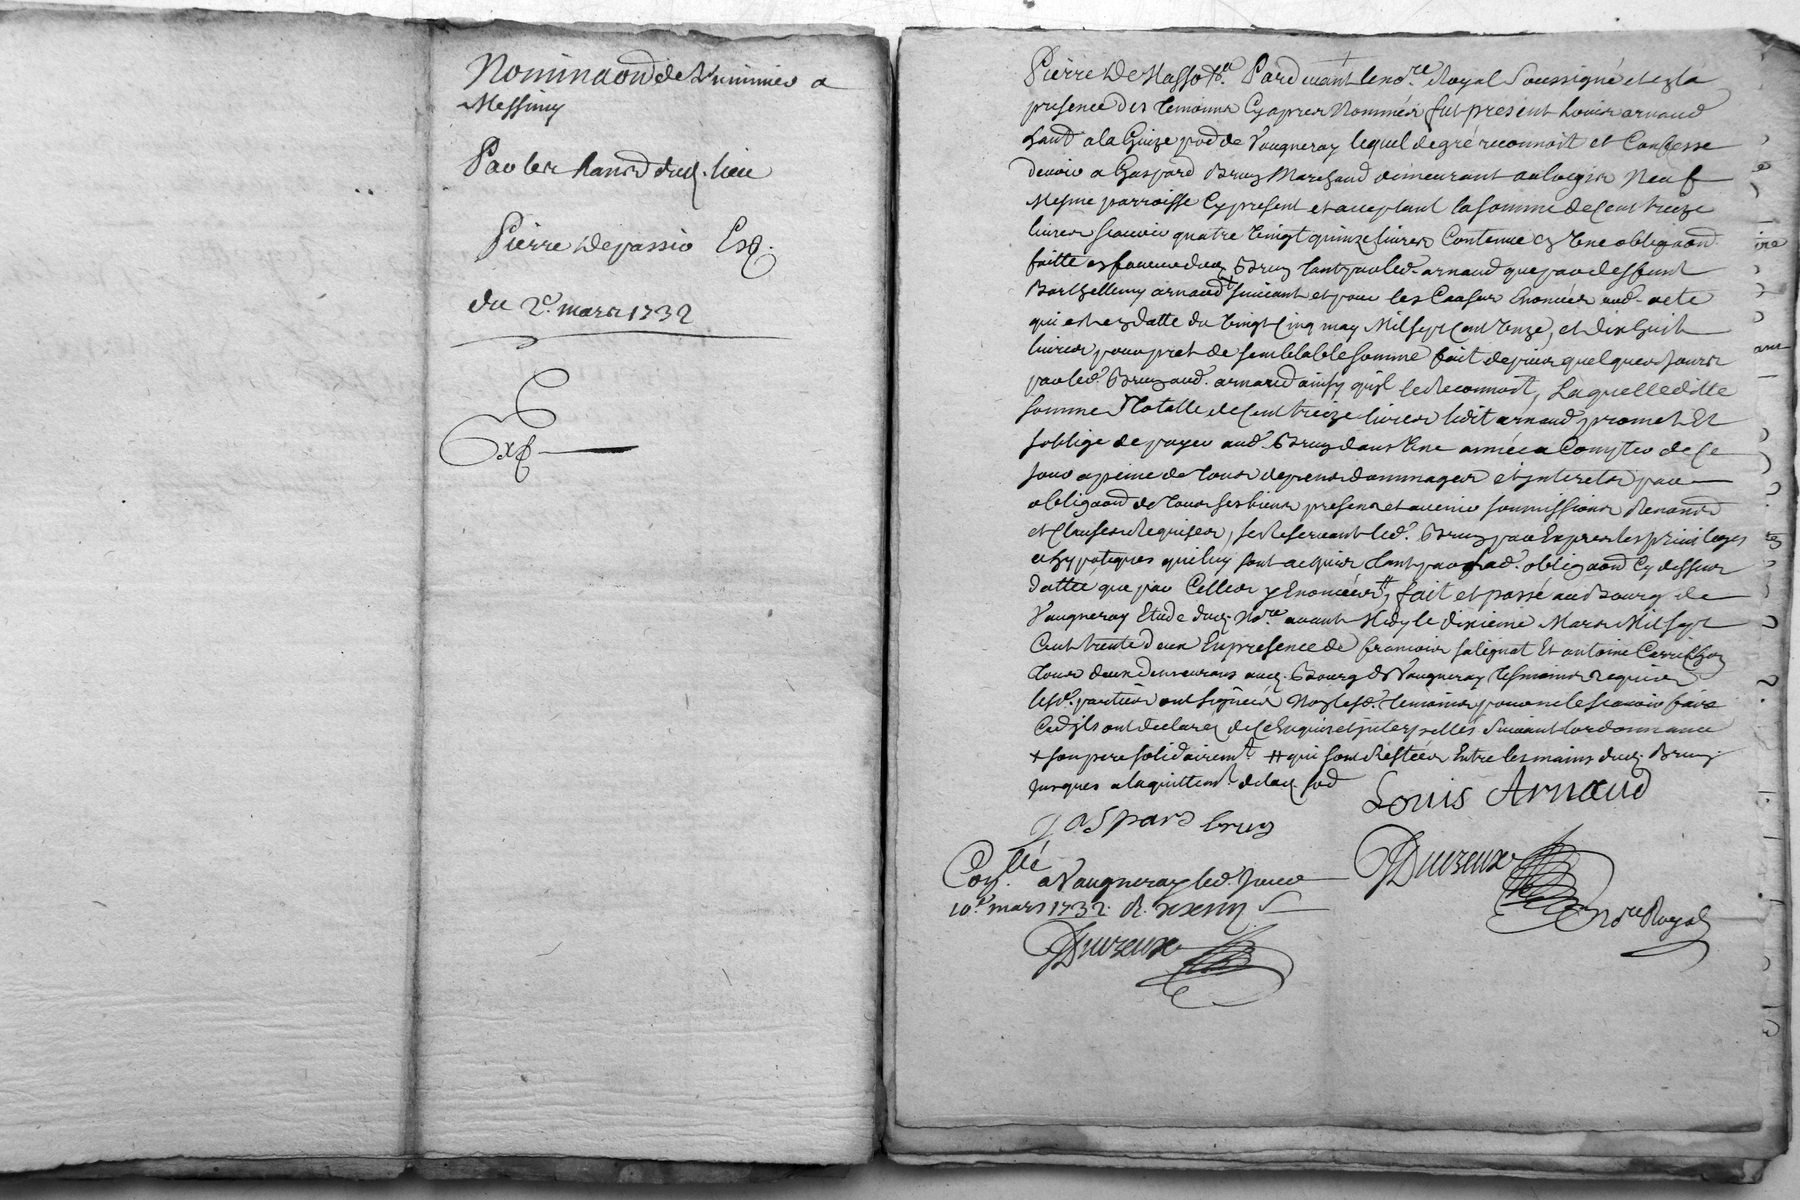 Nominaond de Prunnier a
Messimy
Par les hands dud. lieu
Pierre Depassio Esq.
du 2e. mars 1732
Exp
Pardevant le nore. Royal soussigné et en la
presence des temoins cyapres nommés fut present Louis arnaud
habt a la parr de Vaugneray lequel de gré reconnoit et confesse
devoir a Gaspard Brun Marchand demeurant au logis Neuf
mesme parroisse cy present et acceptant la somme de cent treize
livres scavoir quatre vingt quinze livres contenue en une obligaond
faitte en faveur dud. Brun tant par led. arnaud que par deffunt
Barthellemy arnaud + suivant et pour les causes enoncées aud. acte
qui est en datte du vingt cinq may Mil sept cent onze, et dix huit
livres pour pret de semblable somme fait depuis quelques jours
par led. Brun aud. arnaud ainsy quil le reconnoit, Laquelle ditte
somme totalle de cent treize livres ledit arnaud promet et
soblige de payer aud. Brun dans une année a compter de ce
jour a peine de tous depens dommages et interets par
obligaond de tous ses biens presens et avenir soumissions Renonds
et clauses requises, se reservant led. Brun par exprès les privileges
et hypoteques qui luy sont acquis tant par lad. obligaond cy dessus
dattée que par celles y enoncées # fait et passé au Bourg de
Vaugneray Etude dud. Nore avant Midy le dixieme Mars Mil sept
cent trente deux En presence de francois salignat Et antoine
tous deux demeurans aud. Bourg de Vaugneray temoins requis
lesd. parties ont signées non lesd. temoins pour ne le scavoir faire
ils ont declarez de ce enquis et interpellés suivant lordonnance
+ son pere solidairemt # qui sont restées entre les mains dud. Brun
jusques a la quittance
Louis Arnaud
gaspard brun
Conllé a Vaugneray led. jour
10e mars 1732. R.
Duvzeux
Nore Royal
Duvzeux